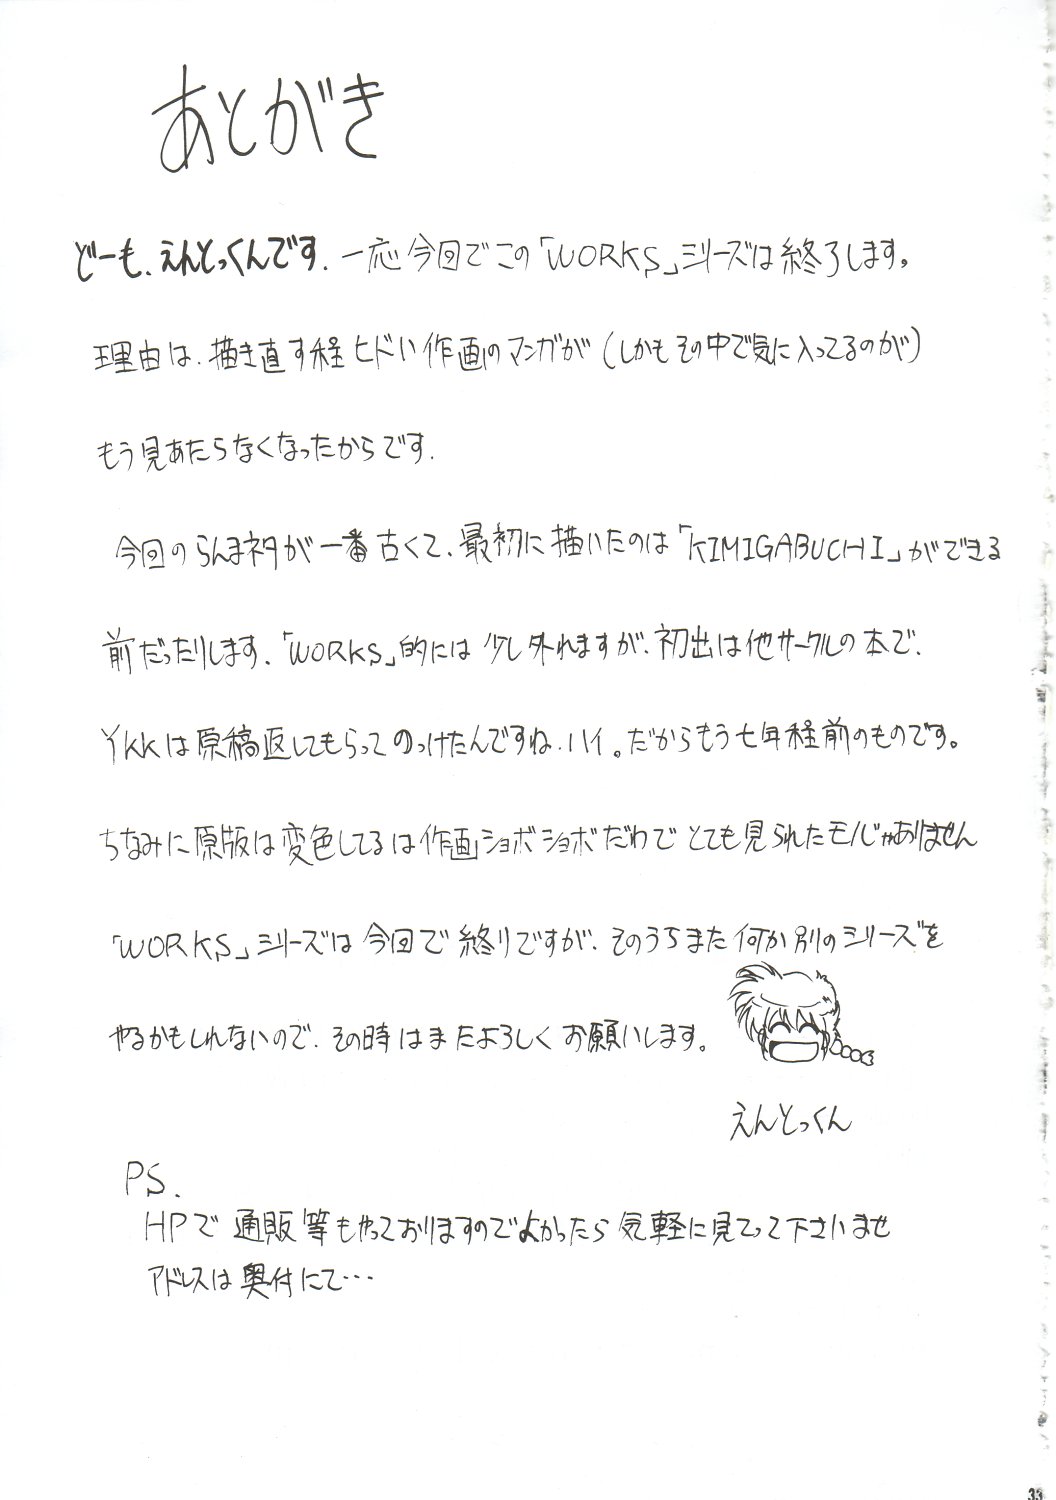 あとがき
どーも、えんとっくんです. 一応今回でこの「WORKS」シリーズは終了します。
理由は、描き直す程ヒドい作画のマンガが(しかもその中で気に入ってるのが)
もう見あたらなくなったからです.
今回のらんまネタが一番古くて、最初に描いたのは「KIMIGABUCHI」ができる
前だったりします.「WORKS」的には少し外れますが、初出は他サークルの本で、
YKKは原稿返してもらってのっけたんですね、ハイ。だからもう七年程前のものです。
ちなみに原版は変色してるは作画ショボショボだわでとても見られたモノじゃありません
「WORKS」シリーズは今回で終りですが、そのうちまた何か別のシリーズを
やるかもしれないので、その時はまたよろしくお願いします。
えんとっくん
PS.
HPで通販等もやっておりますのでよかったら気軽に見てって下さいませ
アドレスは奥付にて…
33